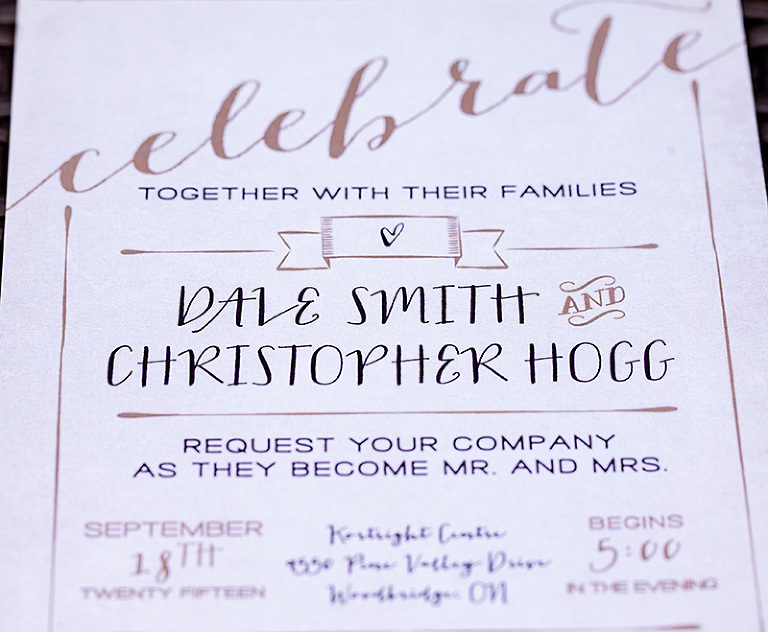 celebrate
TOGETHER WITH THEIR FAMILIES
DALE SMITH AND
CHRISTOPHER HOGG
REQUEST YOUR COMPANY
AS THEY BECOME MR. AND MRS.
SEPTEMBER
18TH
TWENTY FIFTEEN
Kortright Centre
9550 Pine Valley Drive
Woodbridge, ON
BEGINS
5:00
IN THE EVENING